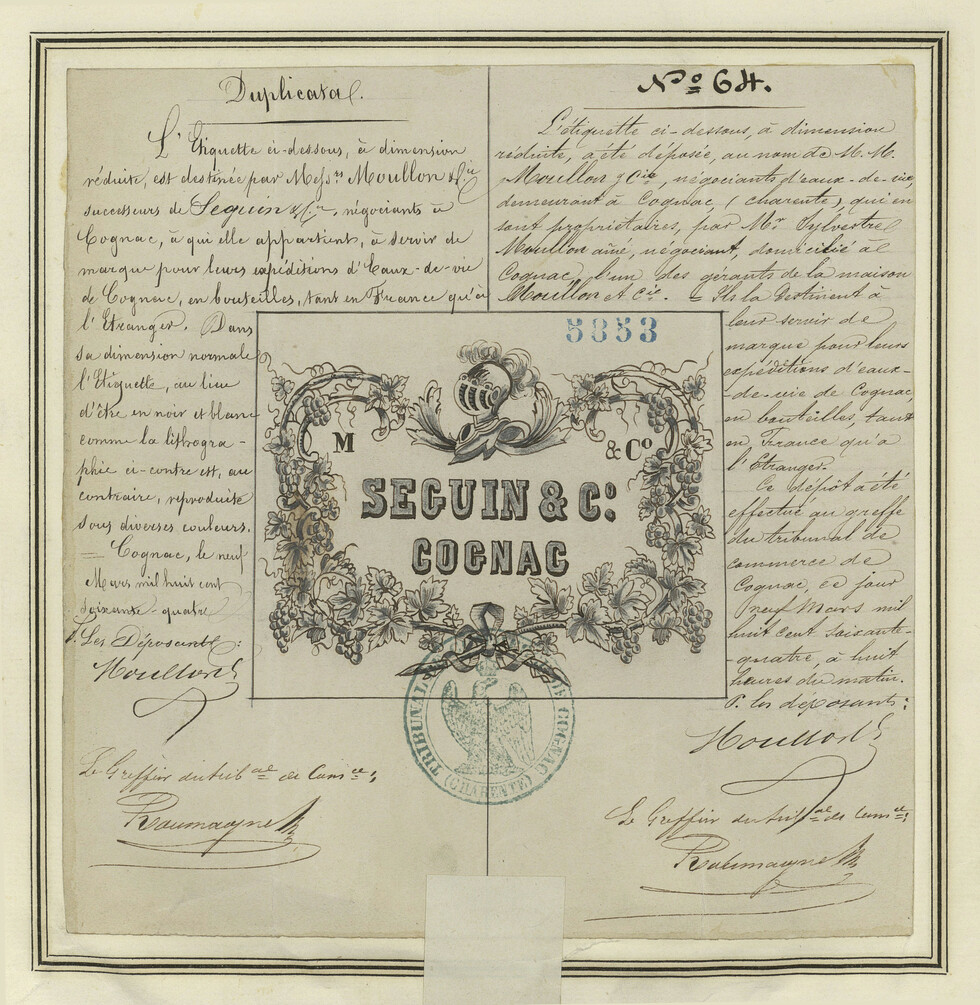 Duplicata.
L'Etiquette ci-dessous, à dimension
réduite, est destinée par Mess.rs Moullon & C.ie
successeurs de Seguin & C.ie, négociants à
Cognac, à qui elle appartient, à servir de
marque pour leurs expéditions d'Eaux-de-vie
de Cognac, en bouteilles, tant en France qu'à
l'Etranger. Dans
sa dimension normale
l'Etiquette, au lieu
d'être en noir et blanc
comme la lithogra-
phie ci-contre est, au
contraire, reproduite
sous diverses couleurs.
= Cognac, le neuf
Mars mil huit cent
soixante-quatre
P. Les Déposants:
Moullon
Le Greffier du trib.al de Com.ce;
Roumagne
No 64.
L'étiquette ci-dessous, à dimension
réduite, a été déposée, au nom de M.M.
Moullon & Cie, négociants d'eaux-de-vie,
demeurant à Cognac, (charente), qui en
sont propriétaires, par Mr Sylvestre
Moullon aîné, négociant, domicilié à
Cognac, l'un des gérants de la maison
Moullon et Cie. = Ils la Destinent à
leur servir de
marque pour leurs
expéditions d'eaux-
-de-vie de Cognac,
en bouteilles, tant
en France qu'à
l'Etranger.
Ce dépôt a été
effectué au greffe
du tribunal de
commerce de
Cognac, ce jour
neuf Mars mil
huit cent soixante-
-quatre, à huit
heures du matin.
P. les déposants:
Moullon
Le Greffier du trib.al de Com.ce;
Roumagne
5853
M & Co
SEGUIN & Co.
COGNAC
TRIBUNAL DE COGNAC
(CHARENTE)